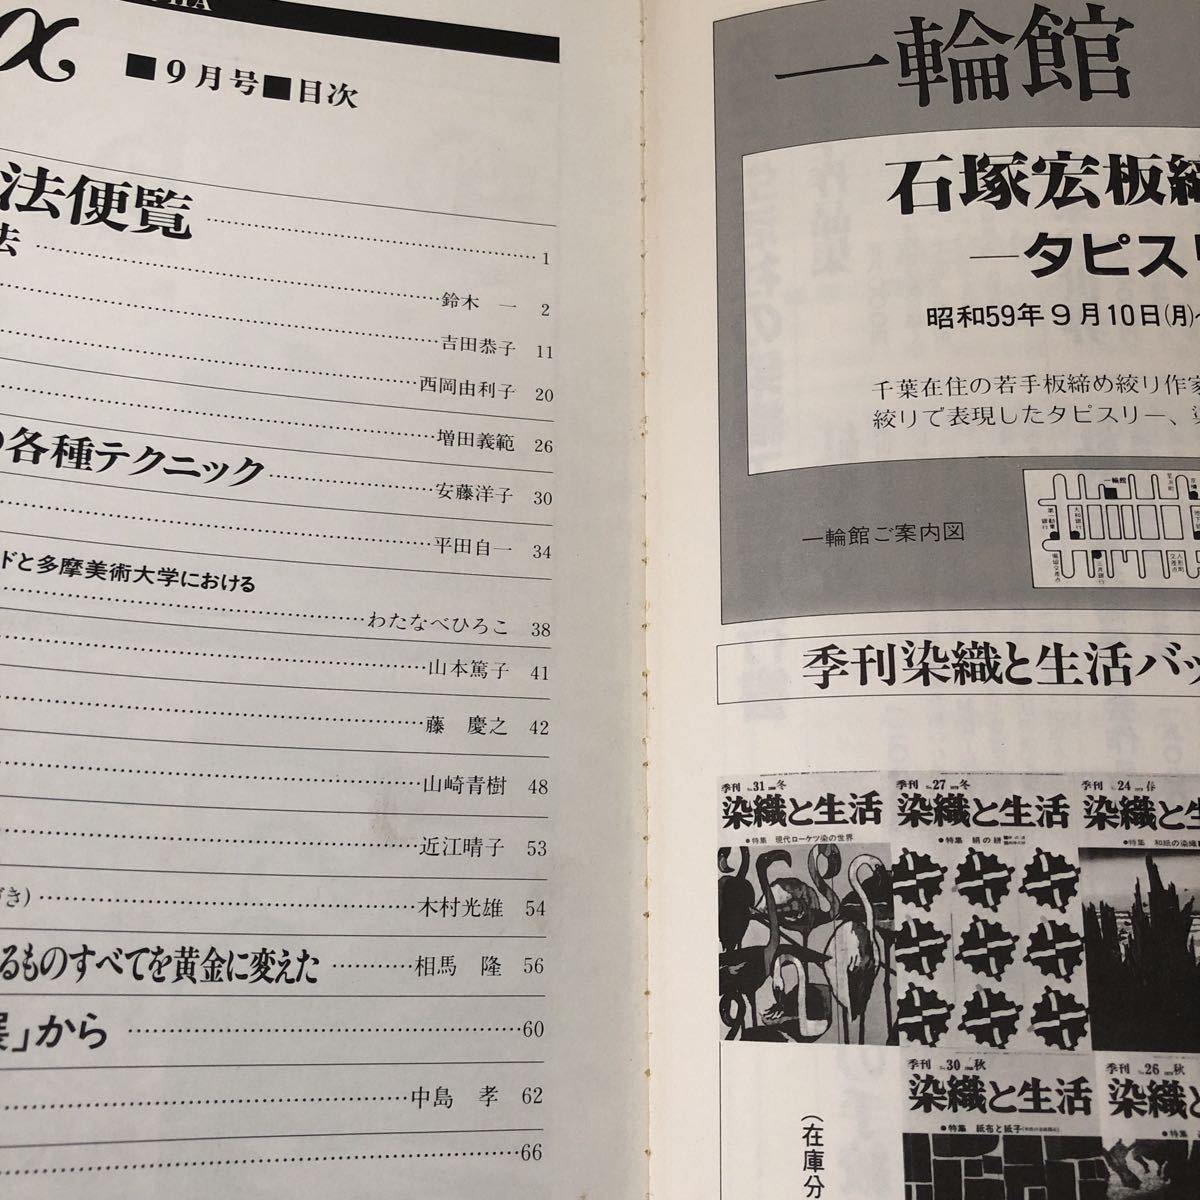 α
■9月号■目次
法便覧 1
法 鈴木 一 2
吉田恭子 11
西岡由利子 20
増田義範 26
各種テクニック 安藤洋子 30
平田自一 34
ドと多摩美術大学における
わたなべひろこ 38
山本篤子 41
藤 慶之 42
山崎青樹 48
近江晴子 53
き) 木村光雄 54
るものすべてを黄金に変えた 相馬 隆 56
展」から 60
中島 孝 62
66
一輪館
石塚宏板締
―タピスリ
昭和59年9月10日(月)
千葉在住の若手板締め絞り作家
絞りで表現したタピスリー、
一輪館ご案内図
一輪館
季刊染織と生活バッ
季刊 No.31 冬
染織と生活
●特集 現代ローケツ染の世界
季刊 No.27 冬
染織と生活
●特集 絹の絣
季刊 No.24 春
染織と生
●特集 和紙の染織
季刊 No.30 秋
染織と生活
●特集 紙布と紙子
季刊 No.26 秋
染織と
●特集
(在庫分